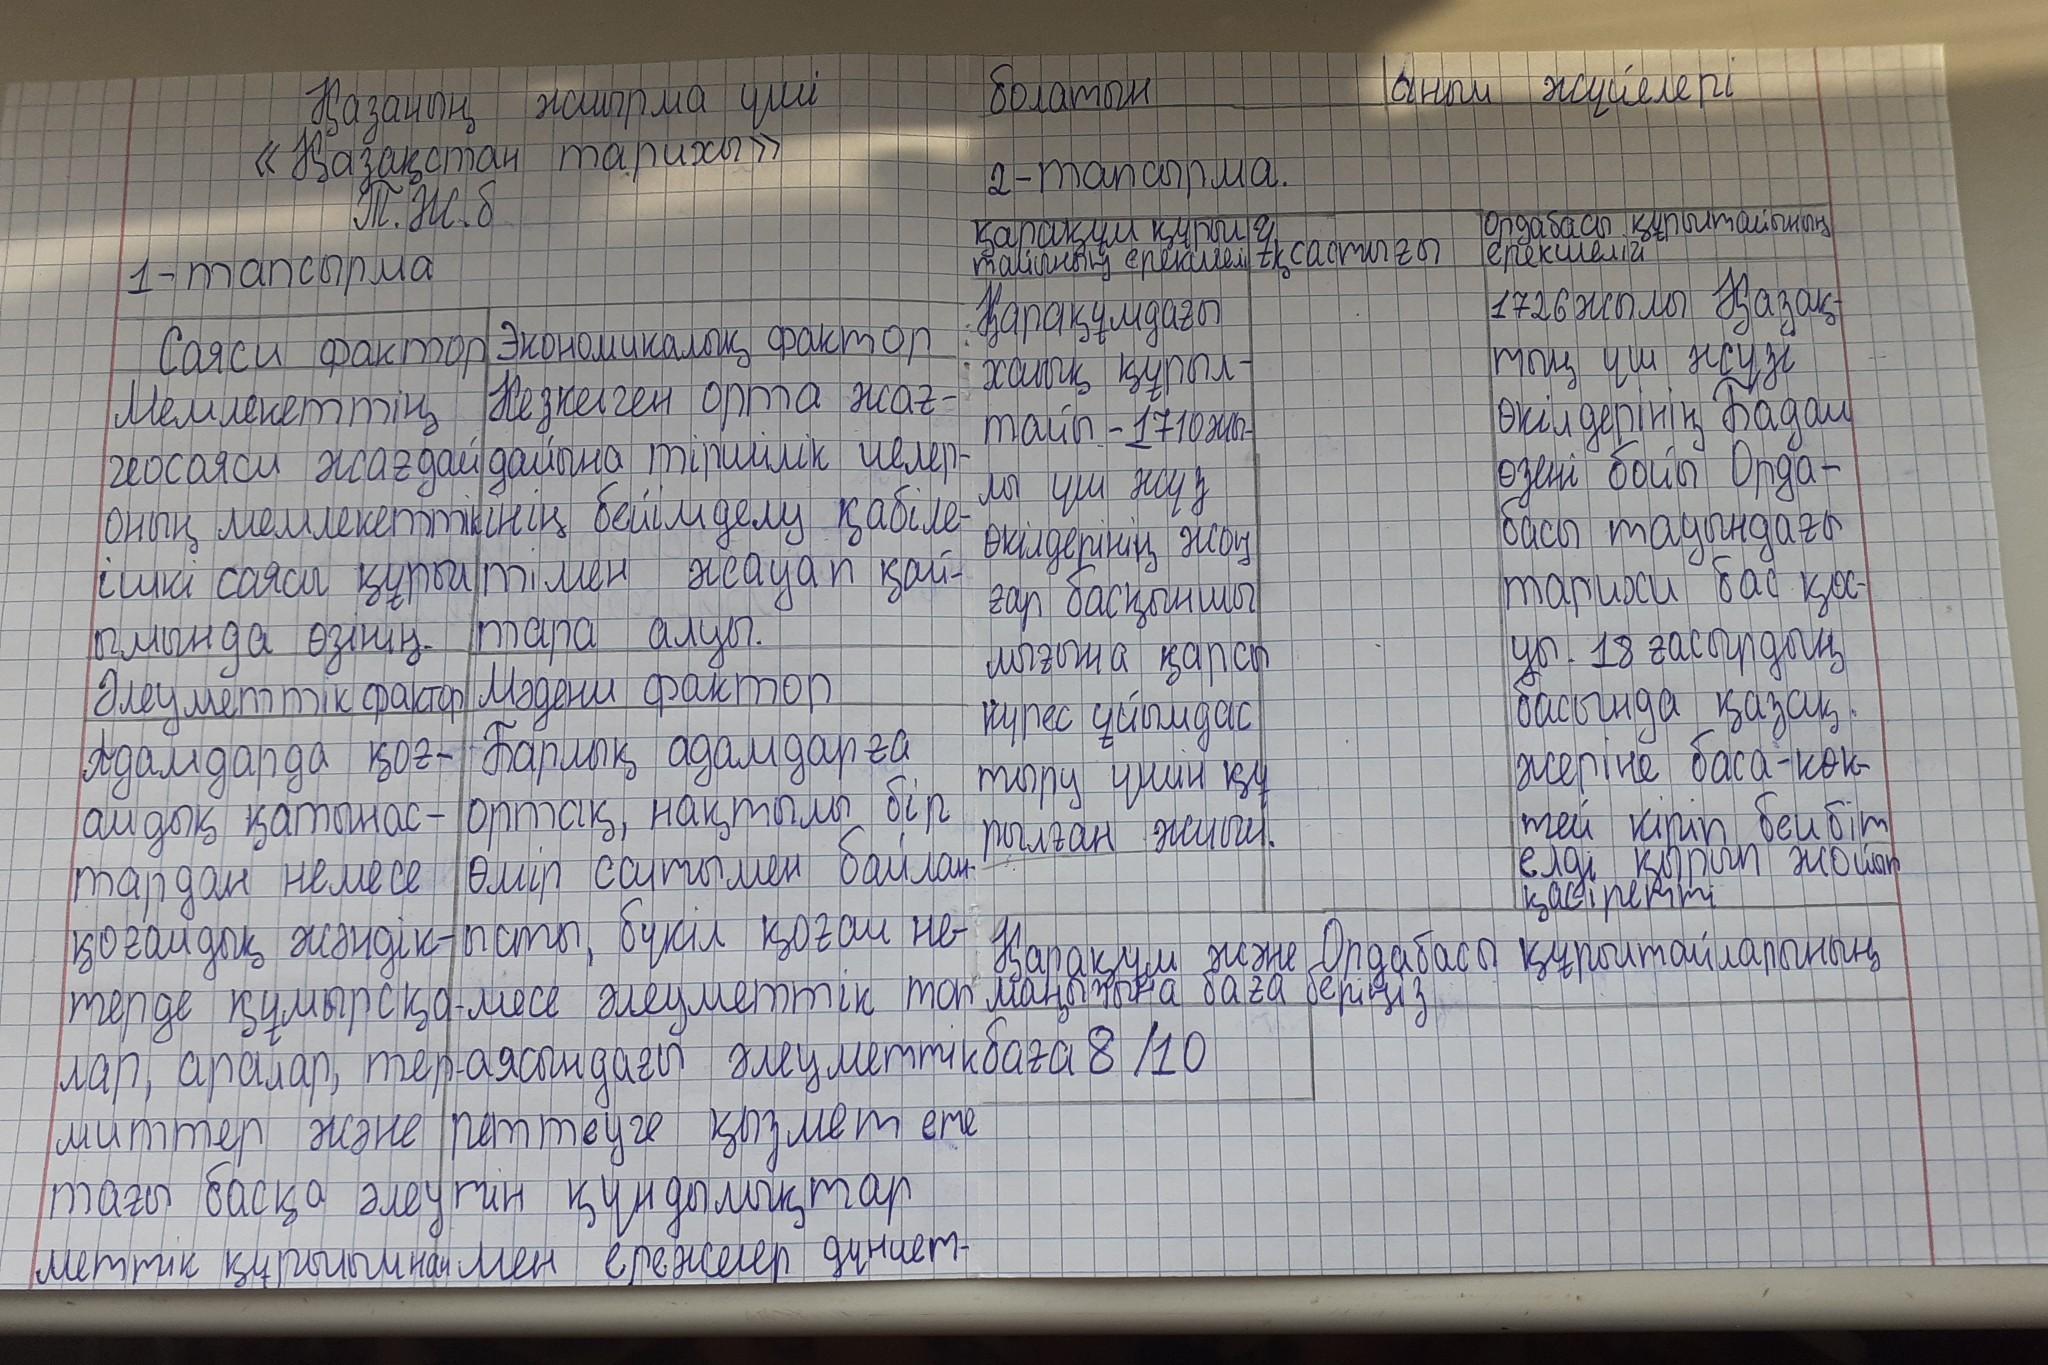 Қазаның жиырма үші
«Қазақстан тарихы»
Т.Ж.б
1-тапсырма
Саяси фактор
Мемлекеттің
геосаяси жағдай
оның мемлекеттік
ішкі саяси құрыл
ымында өзінің.
Экономикалық фактор
Кезкелген орта жағ-
дайына тіршілік иелер-
інің бейімделу қабіле-
тімен жауап қай-
тара алуы.
Әлеуметтік фактор
Адамдарда қоғ-
амдық қатынас-
тардан немесе
қоғамдық жәндік-
терде құмырсқа-
лар, аралар, тер-
миттер және
тағы басқа әлеу
меттік құрылымнан
Мәдени фактор
Барлық адамдарға
ортақ, нақтылы бір
өмір салтымен байлан-
ысты, бүкіл қоғам не-
месе әлеуметтік топ
аясындағы әлеуметтік
реттеуге қызмет ете
тін құндылықтар
мен ережелер дүниет-
болатын
аным жүйелері
2-тапсырма.
Қарақұм құрыл
тайының ерекшелі
Ұқсастығы
Ордабасы құрылтайының
ерекшелігі
Қарақұмдағы
халық құрыл-
тайы - 1710жы-
лы үш жүз
өкілдерінің жоң
ғар басқыншы
лығына қарсы
күрес ұйымдас
тыру үшін құ
рылған жиын.
1726жылы Қазақ-
тың үш жүзі
өкілдерінің Бадам
өзені бойы Орда-
басы тауындағы
тарихи бас қос-
уы. 18 ғасырдың
басында қазақ
жеріне баса-көк-
тей кіріп бейбіт
елді қырып жойып
қасіретті
Қарақұм және Ордабасы құрылтайларының
маңызына баға беріңіз
баға 8/10